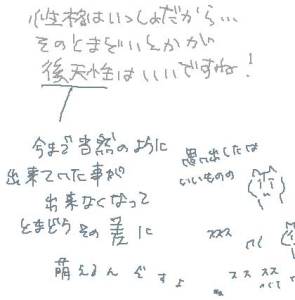 性格はいっしょだから…
そのとまどいとかが
後天性はいいですね!
今まで当然のように
出来ていた事が
出来なくなって
とまどうその差に
萌えるんですよ
思い出したは
いいものの
ススス
スス スス